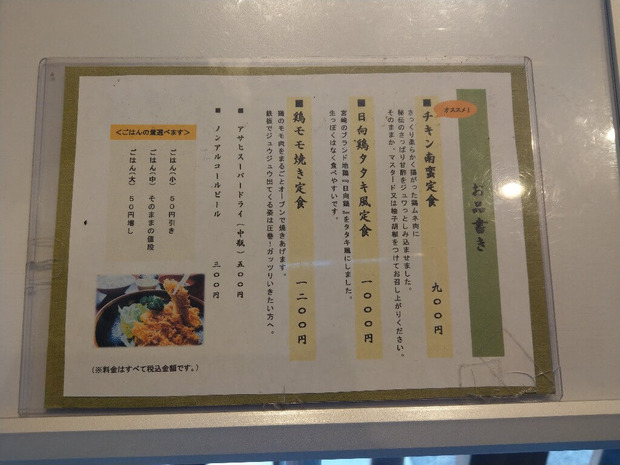 お品書き
オススメ!
■ チキン南蛮定食 九〇〇円
さっくり柔らかく揚がった鶏ムネ肉に
秘伝のさっぱり甘酢をジュワっとしみ込ませました。
そのままか、マスタード又は柚子胡椒をつけてお召し上がりください。
■ 日向鶏タタキ風定食 一〇〇〇円
宮崎のブランド地鶏『日向鶏』をタタキ風にしました。
生っぽくはなく食べやすいです。
■ 鶏モモ焼き定食 一二〇〇円
鶏のモモ肉をまるごとオーブンで焼きあげます。
鉄板でジュウジュウ出てくる姿は圧巻!ガッツリいきたい方へ。
■ アサヒスーパードライ(中瓶) 五〇〇円
■ ノンアルコールビール 三〇〇円
<ごはんの量選べます>
ごはん(小) 50円引き
ごはん(中) そのままの値段
ごはん(大) 50円増し
(※料金はすべて税込金額です。)